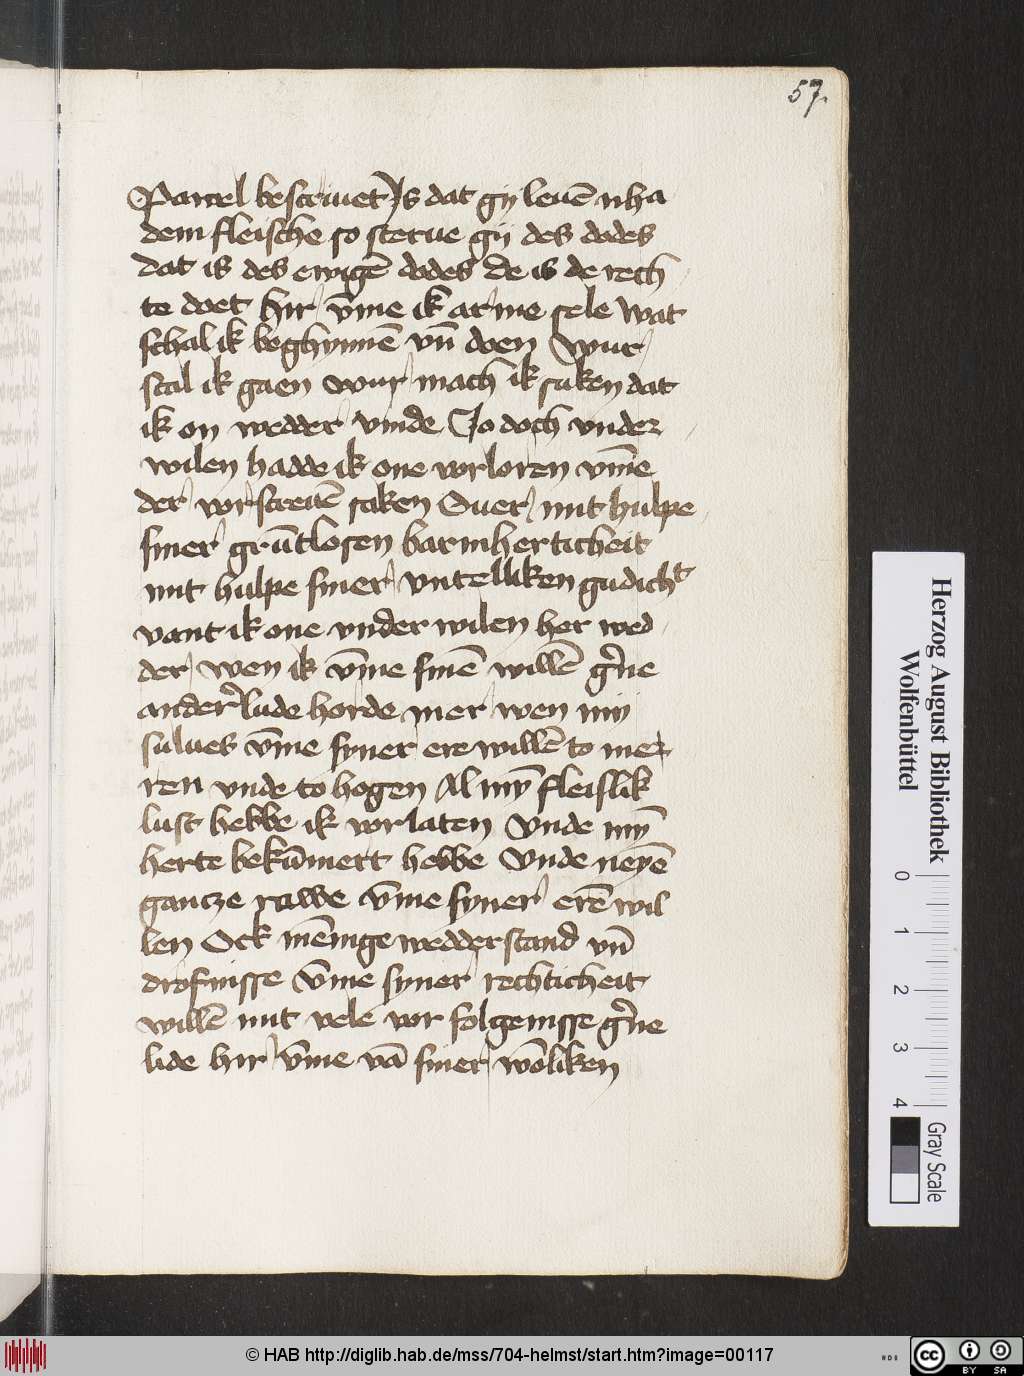 57.
Pawel bescriuet Is dat gy leuē nha
dem fleische so sterue gy des dodes
dat is des ewigē dodes De is de rech
te doet hir v̄me ik arme sele wat
schal ik beghynnē vn̄ doen Wur
scal ik gaen wur mach ik suken dat
ik on wedder vinde Jo doch vnder
wilen hadde ik one vorloren vm̄e
der vorscreuē saken Ouer mit hulpe
siner grūtlosen barmherticheit
mit hulpe siner vntelliken gudicht
vant ik one vnder wilen her wed
der wen ik v̄me sinē willē g'ne
ander lude horde mer wen my
sulues v̄me syner ere willē to mer
ren vnde to hogen Al myn̄ fleislik
lust hebbe ik vorlaten Vnde myn̄
herte bekūmert hebbe Vnde neyē
gantze rawe v̄me syner erē wil
len Ock mēnige wedderstand vn̄
drofnisse v̄me syner rechticheit
willē mit vele vor folgenisse g'ne
lide hir v̄me vā siner wōliken
Herzog August Bibliothek
Wolfenbüttel
0
1
2
3
4
Gray Scale
© HAB http://diglib.hab.de/mss/704-helmst/start.htm?image=00117
HAB
cc
BY SA